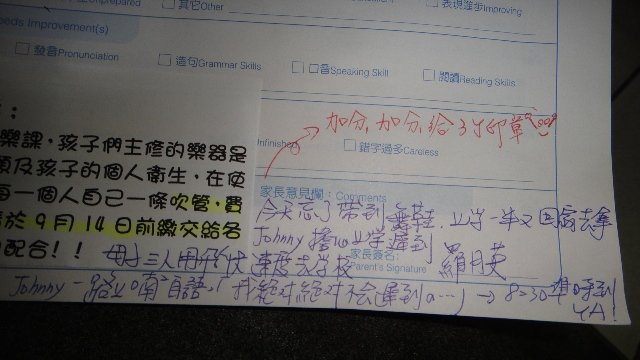 Unprepared
其它Other
表現進步Improving
eds Improvement(s)
發音Pronunciation
造句Grammar Skills
口音Speaking Skill
閱讀Reading Skills
加分,加分,給3個印章
Unfinished
錯字過多Careless
樂課,孩子們主修的樂器是
顧及孩子的個人衛生,在使
每一個人自己一條吹管,費
於9月14日前繳交給各
配合!!
家長意見欄:Comments
今天忘了帶到舞鞋,上學一半又回家去拿
Johnny擔心上學遲到
家長簽名:
Parent's Signature
羅月英
母子三人用最快速度去學校
Johnny一路上喃喃自語,「我絕对絕对不会遲到a…」→8:30準時到
YA!